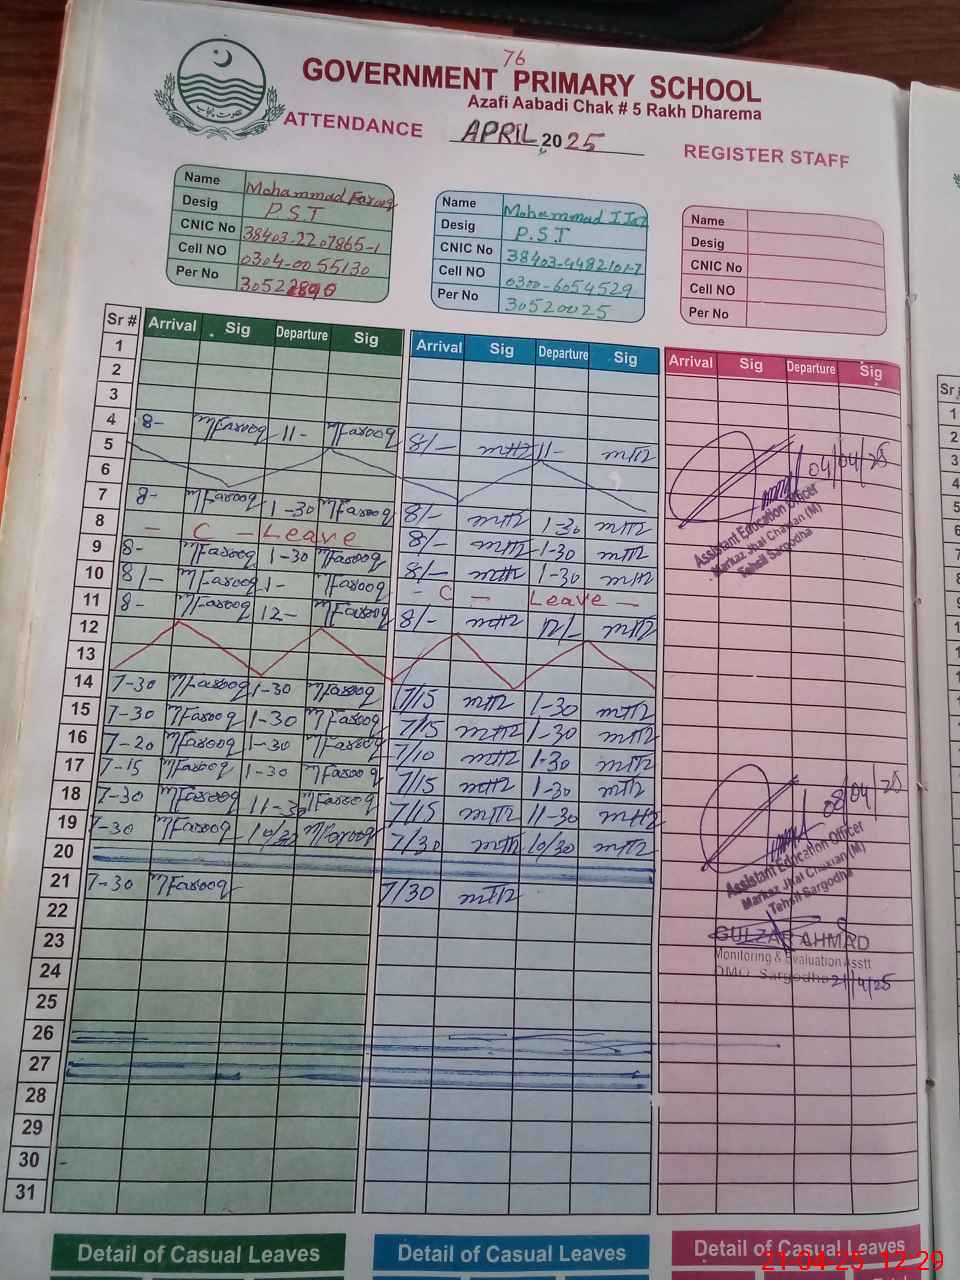 76
GOVERNMENT PRIMARY SCHOOL
Azafi Aabadi Chak # 5 Rakh Dharema
ATTENDANCE APRIL, 2025 REGISTER STAFF
Name Mohammad Farooq
Desig P.S.T
CNIC No 38403-2207865-1
Cell NO 0304-0055130
Per No
Name Mohammad
Desig P.S.T
CNIC No 38403-4482101-7
Cell NO 0300-6054529
Per No 30520025
Name
Desig
CNIC No
Cell NO
Per No
Sr # Arrival Sig Departure Sig Arrival Sig Departure Sig Arrival Sig Departure Sig
1
2
3
4 8- MFarooq 11- MFarooq 8/- 11-
5
6
7 8- MFarooq 1-30 MFarooq 8/- 1-30
8 - C - Leave 8/- 1-30
9 8- MFarooq 1-30 MFarooq 8/- 1-30
10 8/- MFarooq 1- MFarooq - C - Leave -
11 8- MFarooq 12- MFarooq 8/- 12/-
12
13
14 7-30 MFarooq 1-30 MFarooq 7/15 1-30
15 7-30 MFarooq 1-30 MFarooq 7/15 1-30
16 7-20 MFarooq 1-30 MFarooq 7/10 1-30
17 7-15 MFarooq 1-30 MFarooq 7/15 1-30
18 7-30 MFarooq 11-30 MFarooq 7/15 11-30
19 7-30 MFarooq 10/30 MFarooq 7/30 10/30
20
21 7-30 MFarooq 7/30
22
23
24
25
26
27
28
29
30
31
04/04/25
Assistant Education Officer
Markaz Jhal Chakian (M)
Tehsil Sargodha
08/04/25
Assistant Education Officer
Markaz Jhal Chakian (M)
Tehsil Sargodha
GULZAR AHMAD
Monitoring & Evaluation Asstt
DMO Sargodha 21/4/25
Detail of Casual Leaves Detail of Casual Leaves Detail of Casual Leaves
21-04-25 12:29
Sr #
1
2
3
4
5
6